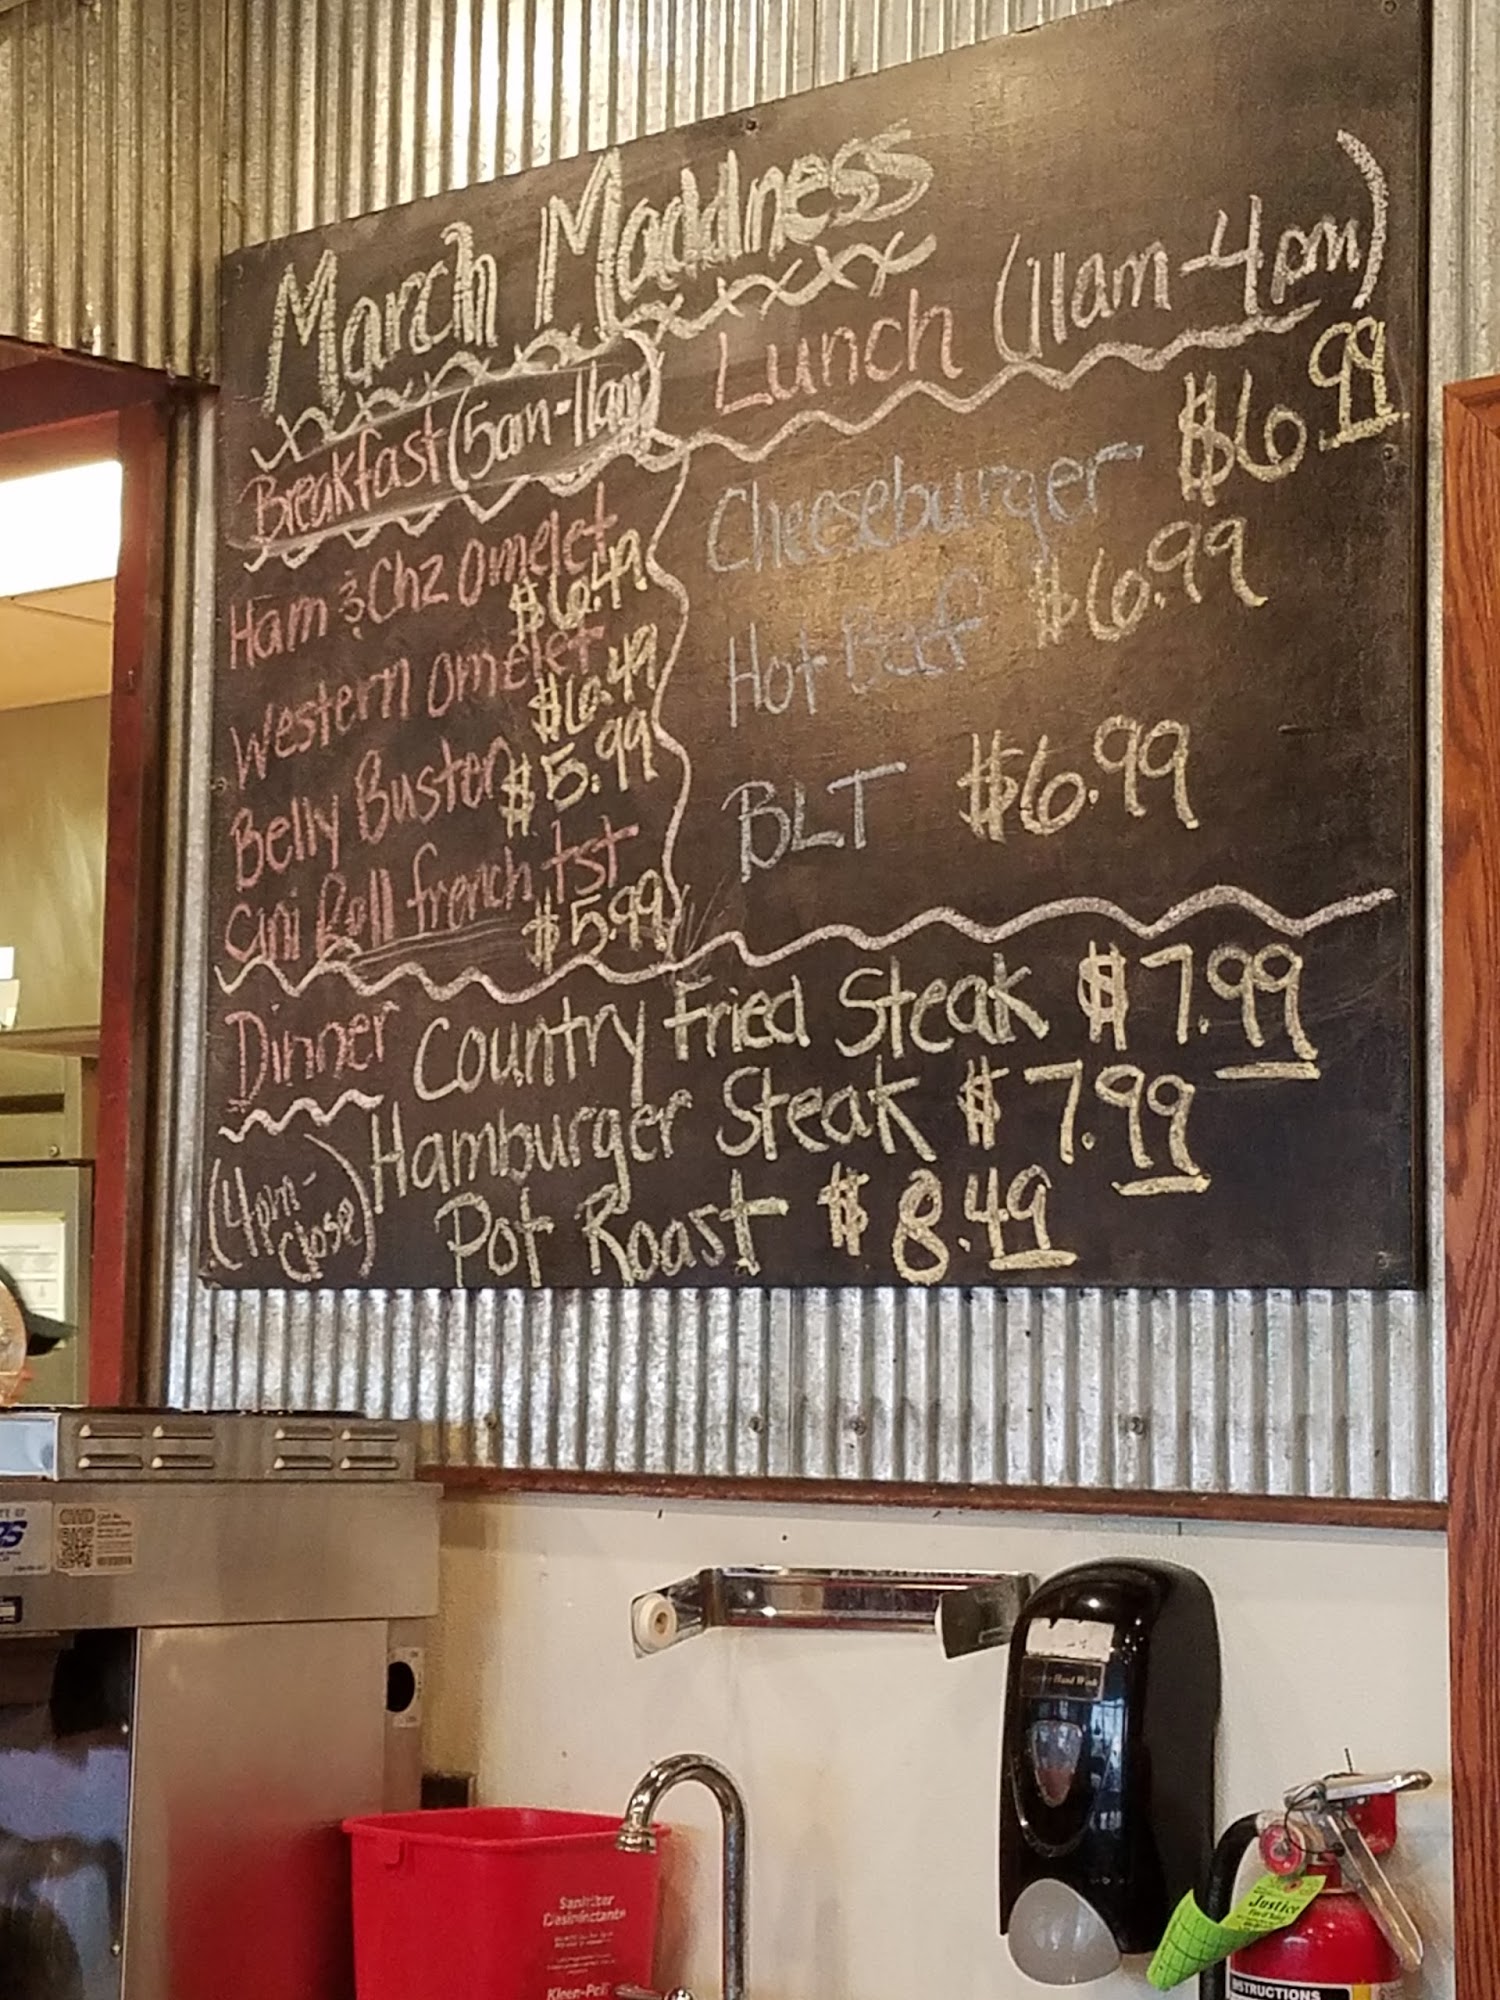 March Maddness
Breakfast (5am-11am)
Ham & Chz omelet
$6.49
Western omelet
$6.49
Belly Buster $5.99
Cini Roll french tst
$5.99
Lunch (11am-4pm)
Cheeseburger $6.99
Hot Beef $6.99
BLT $6.99
Dinner
(4pm-
close)
Country Fried Steak $7.99
Hamburger Steak $7.99
Pot Roast $8.49
GWD
Hand Wash
Sanitizer
Desinfectante
Kleen-Pail
Justice
INSTRUCTIONS